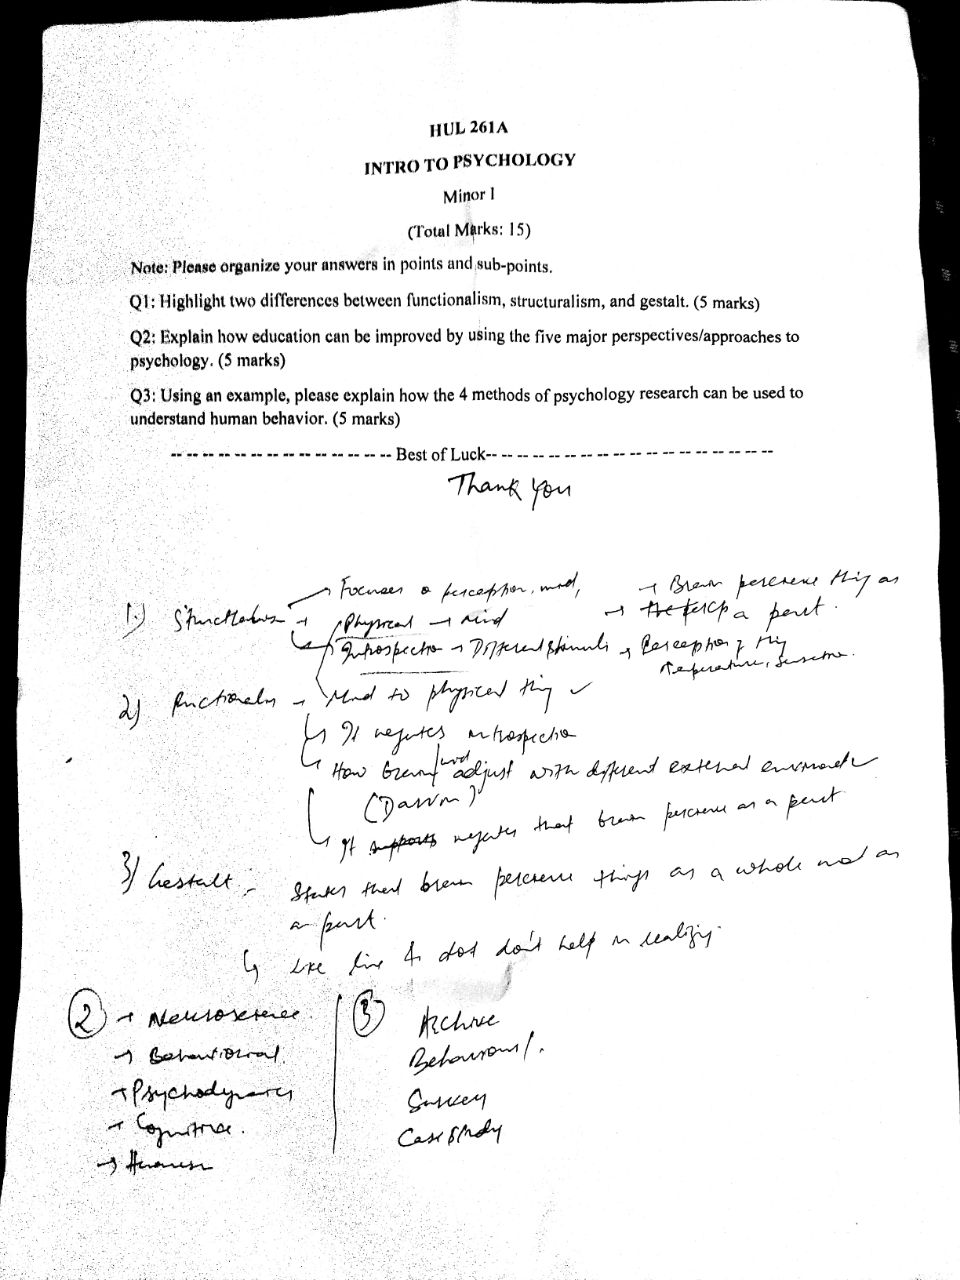 HUL 261A
INTRO TO PSYCHOLOGY
Minor I
(Total Marks: 15)
Note: Please organize your answers in points and sub-points.
Q1: Highlight two differences between functionalism, structuralism, and gestalt. (5 marks)
Q2: Explain how education can be improved by using the five major perspectives/approaches to
psychology. (5 marks)
Q3: Using an example, please explain how the 4 methods of psychology research can be used to
understand human behavior. (5 marks)
-- -- -- -- -- -- -- -- -- -- -- -- -- -- Best of Luck-- -- -- -- -- -- -- -- -- -- -- -- -- -- -- -- -- --
Thank You
1.) → Focuses perception, mind, → Brain thing as
→ Physical → mind → a part.
Introspection → Different stimuli → Perception of
Temperature,
2) → Mind to physical thing ✓
↳ It negates introspection
↳ How brain adjust with different external
(Darwin)
↳ It negates that brain as a part
3) Gestalt - States that brain things as a whole not as
a part.
↳ like line & dot don't help in
② → Neuroscience
→ Behavioural
→ Psychodynamics
→ Cognitive.
③ Archive
Behavioural.
Survey
Case study